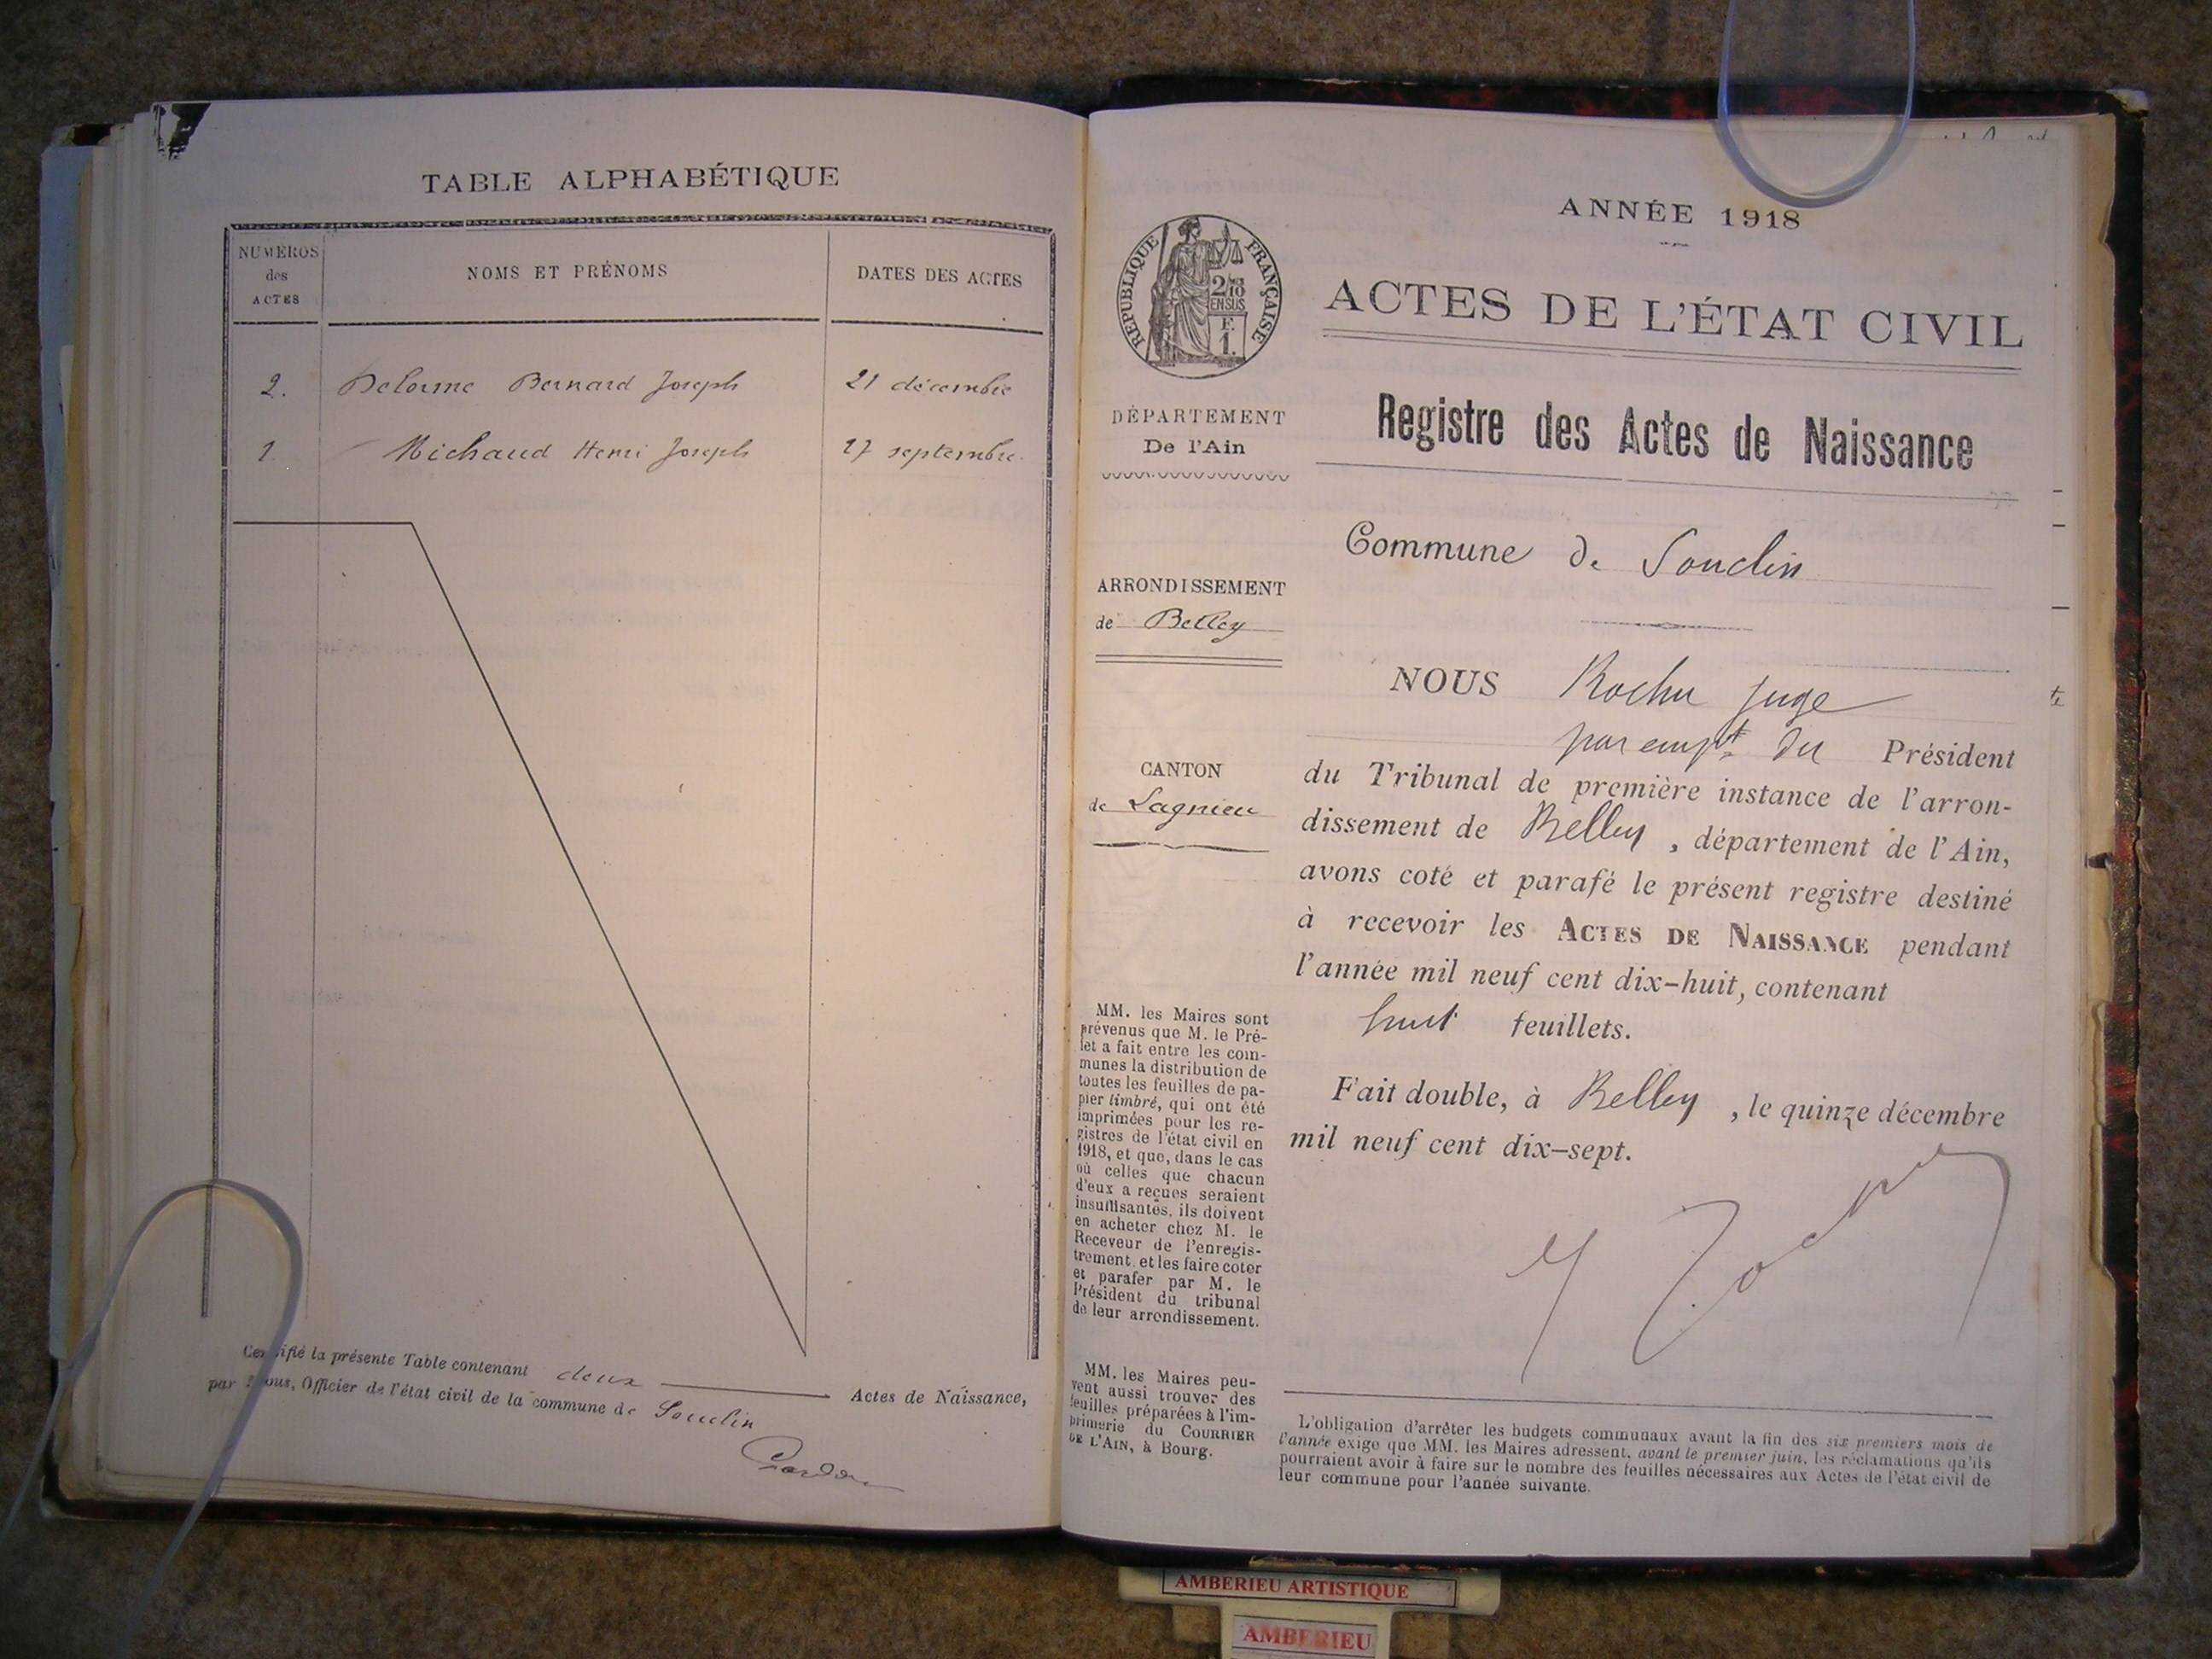 TABLE ALPHABÉTIQUE
NUMÉROS
des
ACTES
NOMS ET PRÉNOMS
DATES DES ACTES
2. Delorme Bernard Joseph 21 décembre
1 Michaud Henri Joseph 27 septembre.
Certifié la présente Table contenant deux Actes de Naissance,
par Nous, Officier de l'état civil de la commune de Souclin
RÉPUBLIQUE FRANÇAISE
DÉPARTEMENT
De l'Ain
ARRONDISSEMENT
de Belley
CANTON
de Lagnieu
MM. les Maires sont
prévenus que M. le Pré-
fet a fait entre les com-
munes la distribution de
toutes les feuilles de pa-
pier timbré, qui ont été
imprimées pour les re-
gistres de l'état civil en
1918, et que, dans le cas
où celles que chacun
d'eux a reçues seraient
insuffisantes, ils doivent
en acheter chez M. le
Receveur de l'enregis-
trement et les faire coter
et parafer par M. le
Président du tribunal
de leur arrondissement.
MM. les Maires peu-
vent aussi trouver des
feuilles préparées à l'im-
primerie du COURRIER
DE L'AIN, à Bourg.
ANNÉE 1918
ACTES DE L'ÉTAT CIVIL
Registre des Actes de Naissance
Commune de Souclin
NOUS Rochu juge
par empt du Président
du Tribunal de première instance de l'arron-
dissement de Belley, département de l'Ain,
avons coté et parafé le présent registre destiné
à recevoir les ACTES DE NAISSANCE pendant
l'année mil neuf cent dix-huit, contenant
huit feuillets.
Fait double, à Belley, le quinze décembre
mil neuf cent dix-sept.
L'obligation d'arrêter les budgets communaux avant la fin des six premiers mois de
l'année exige que MM. les Maires adressent, avant le premier juin, les réclamations qu'ils
pourraient avoir à faire sur le nombre des feuilles nécessaires aux Actes de l'état civil de
leur commune pour l'année suivante.
AMBERIEU ARTISTIQUE
AMBERIEU